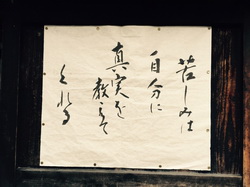 苦しみは
自分に
真実を
教えて
くれる